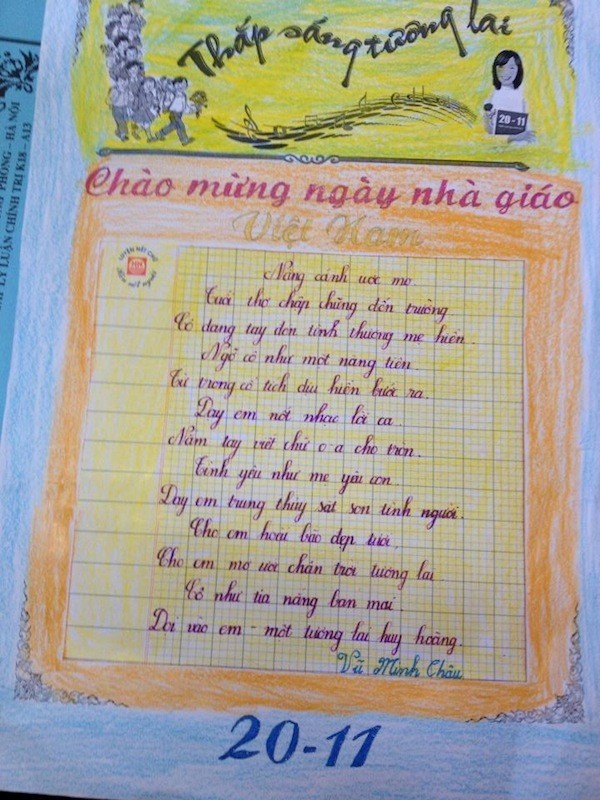 Thắp sáng tương lai
20-11
Chào mừng ngày nhà giáo
Việt Nam
LUYỆN NÉT CHỮ
Rèn nết người
Nâng cánh ước mơ
Tuổi thơ chập chững đến trường
Cô dang tay đón tình thương mẹ hiền.
Ngỡ cô như một nàng tiên
Từ trong cổ tích dịu hiền bước ra.
Dạy em nốt nhạc lời ca.
Nắm tay viết chữ o-a cho tròn.
Tình yêu như mẹ yêu con.
Dạy em trung thủy sắt son tình người.
Cho em hoài bão đẹp tươi,
Cho em mơ ước chân trời tương lai
Cô như tia nắng ban mai.
Dọi vào em - một tương lai huy hoàng.
Vũ Minh Châu
20-11
PHONG - HÀ NỘI
LÝ LUẬN CHÍNH TRỊ K18 - A13